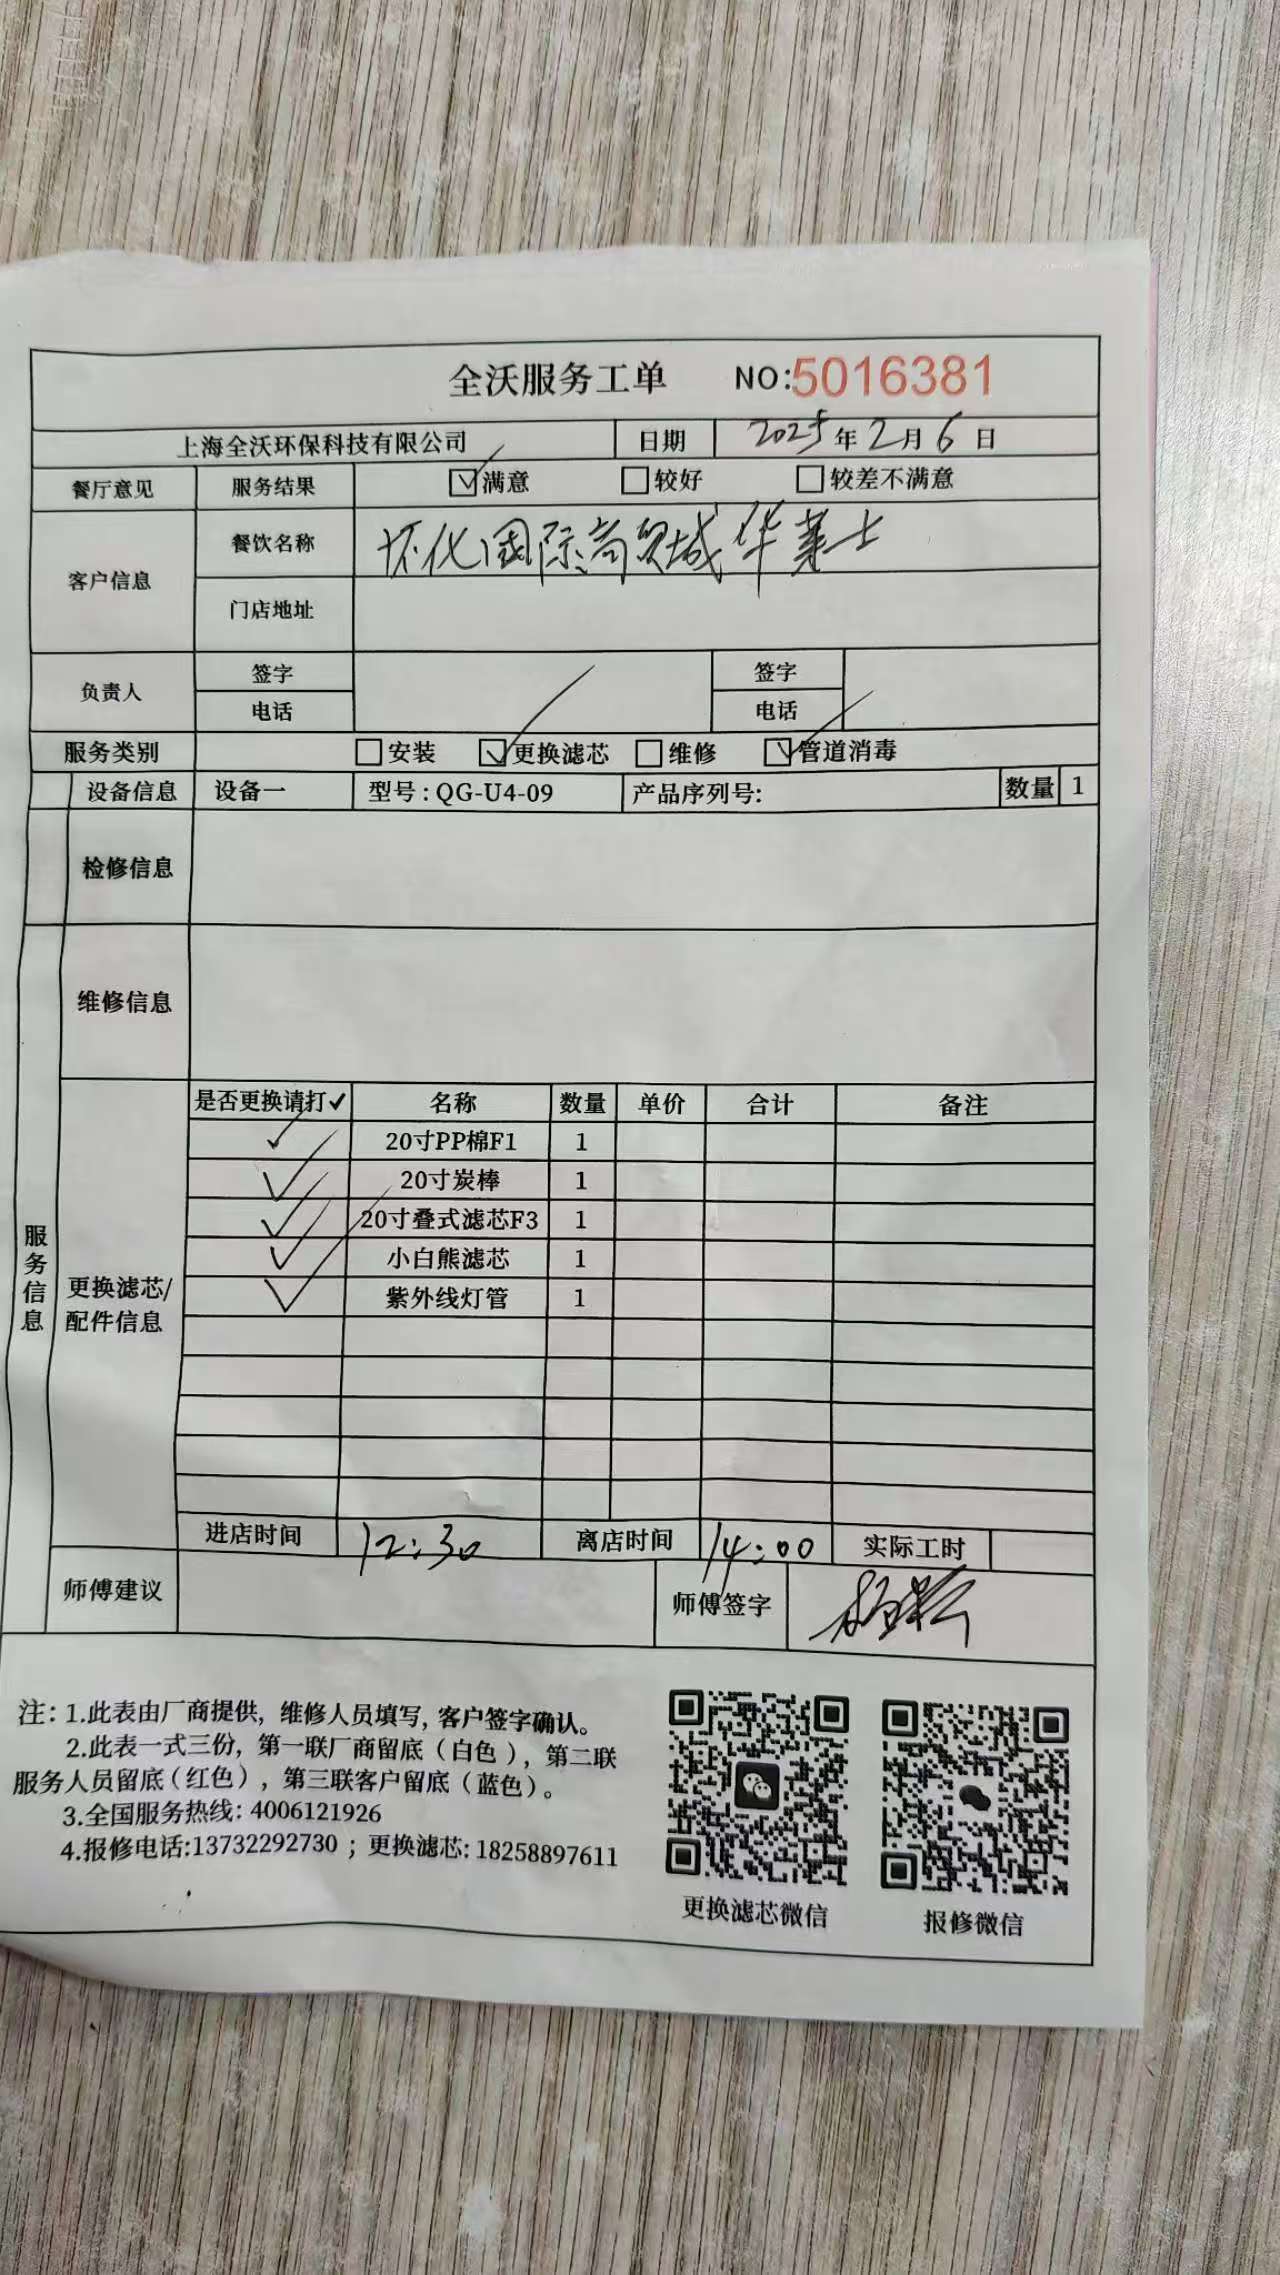 全沃服务工单 NO:5016381
上海全沃环保科技有限公司 日期 2025年2月6日
餐厅意见 服务结果 ☑满意 ☐较好 ☐较差不满意
客户信息 餐饮名称 怀化国际商贸城华莱士
门店地址
负责人 签字 签字
电话 电话
服务类别 ☐安装 ☑更换滤芯 ☐维修 ☑管道消毒
设备信息 设备一 型号:QG-U4-09 产品序列号: 数量 1
检修信息
维修信息
服务信息
更换滤芯/配件信息
是否更换请打✓ 名称 数量 单价 合计 备注
✓ 20寸PP棉F1 1
✓ 20寸炭棒 1
✓ 20寸叠式滤芯F3 1
✓ 小白熊滤芯 1
✓ 紫外线灯管 1
进店时间 12:30 离店时间 14:00 实际工时
师傅建议 师傅签字
注: 1.此表由厂商提供, 维修人员填写, 客户签字确认。
2.此表一式三份, 第一联厂商留底(白色), 第二联
服务人员留底(红色), 第三联客户留底(蓝色)。
3.全国服务热线: 4006121926
4.报修电话:13732292730 ; 更换滤芯: 18258897611
更换滤芯微信 报修微信